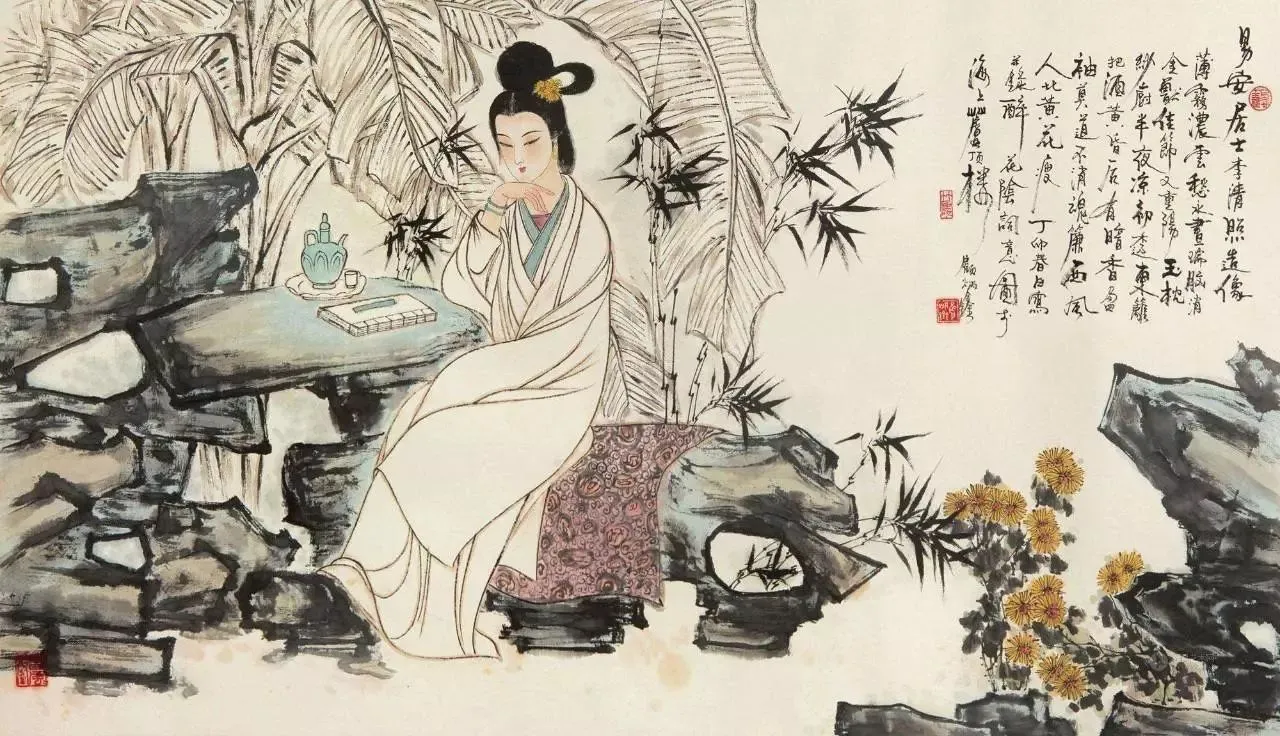 易安居士李清照造像
薄霧濃雲愁永晝瑞腦消
金獸佳節又重陽玉枕
紗廚半夜涼初透東籬
把酒黄昏后有暗香盈
袖莫道不消魂簾西風
人比黄花瘦 丁卯春日寫
醉花陰詞意圖于
海上
顧炳鑫